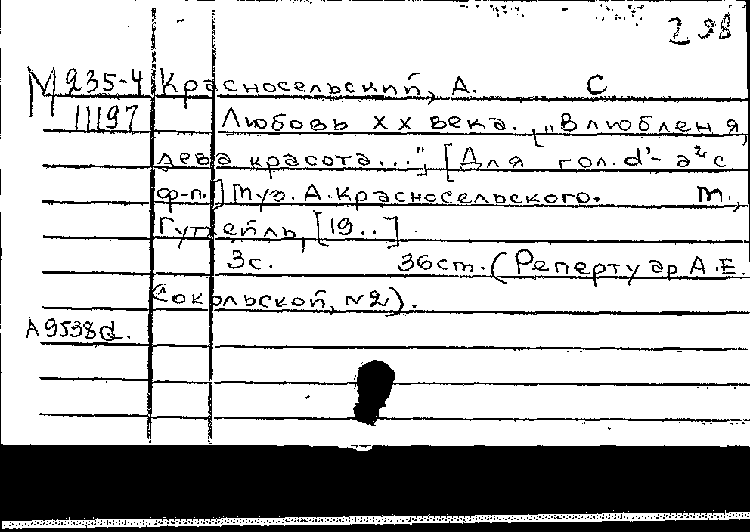 298
М 235-4 Красносельский, А. С
11197 Любовь XX века. „Влюблен я,
дева красота..." [Для гол. d'- a² с
ф-п.] Муз. А. Красносельского. М.,
Гутхейль, [19..]
3с. 36см. (Репертуар А.Е.
Сокольской, №2).
А9538d.